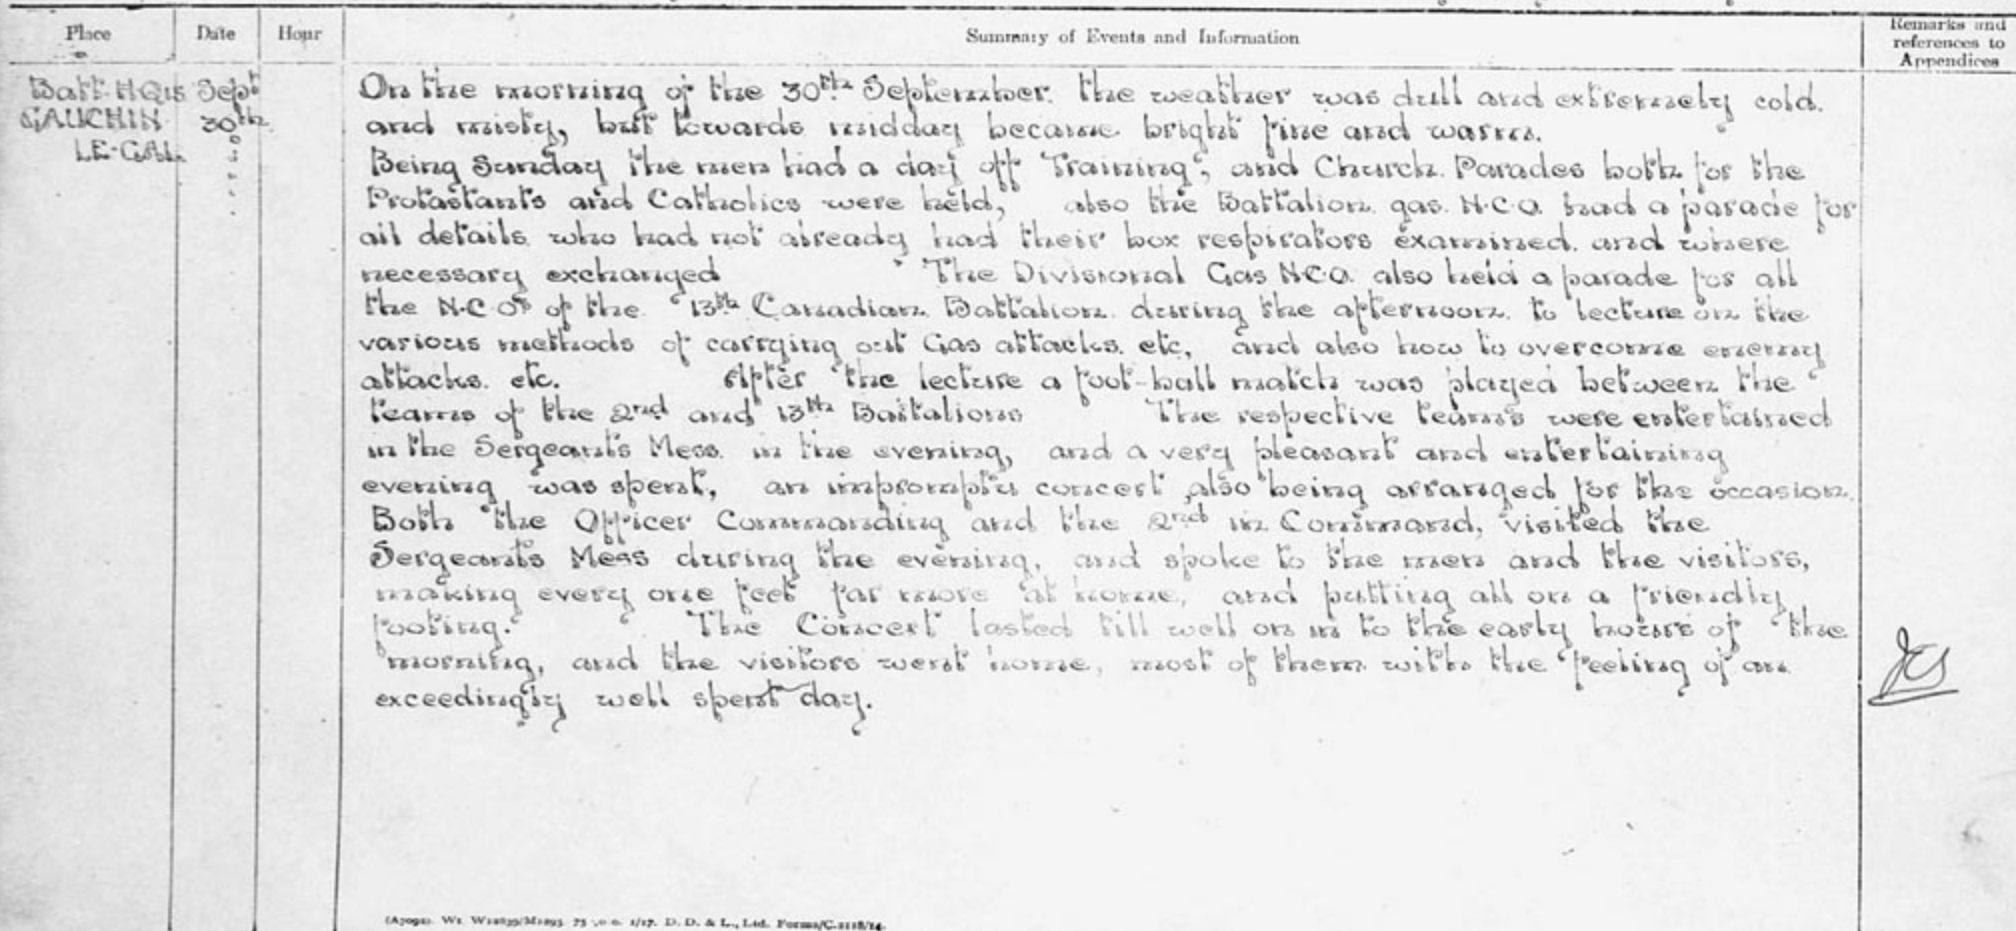 Place Date Hour Summary of Events and Information Remarks and references to Appendices
Batt. HQrs Sept
GAUCHIN 30th
LE-GAL.
On the morning of the 30th September. the weather was dull and extremely cold.
and misty, but towards midday became bright fine and warm.
Being Sunday the men had a day off Training, and Church. Parades both for the
Protastants and Catholics were held, also the Battalion. gas. N.C.O. had a parade for
all details. who had not already had their box respirators examined. and where
necessary exchanged The Divisional Gas N.C.O. also held a parade for all
the N.C.Os of the 13th Canadian. Battalion. during the afternoon. to lecture on the
various methods of carrying out Gas attacks. etc, and also how to overcome enemy
attacks. etc. After the lecture a foot-ball match was played between the
teams of the 2nd and 13th Battalions The respective teams were entertained
in the Sergeants Mess. in the evening, and a very pleasant and entertaining
evening was spent, an impromptu concert also being arranged for the occasion.
Both the Officer Commanding and the 2nd in. Command, visited the
Sergeants Mess during the evening, and spoke to the men and the visitors,
making every one feel far more at home, and putting all on a friendly
footing. The Concert lasted till well on in to the early hours of the
morning, and the visitors went home, most of them with the feeling of an
exceedingly well spent day.
D. D. & L., Ltd. Forms/C.2118/14.